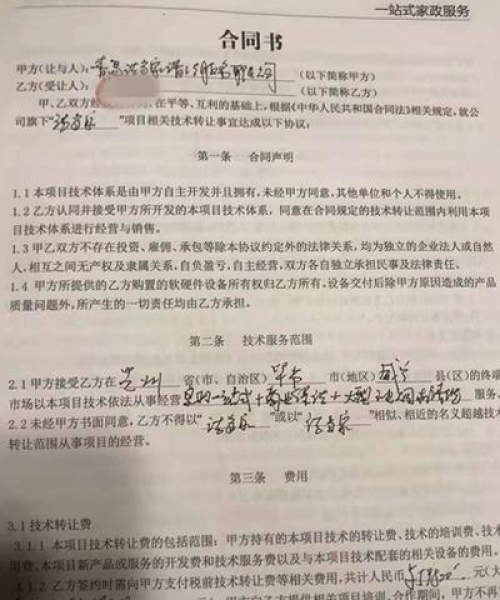 一站式家政服务
合同书
甲方(让与人): (以下简称甲方)
乙方(受让人): (以下简称乙方)
甲、乙双方经 ,在平等、互利的基础上,根据《中华人民共和国合同法》相关规定,就公
司旗下“ ”项目相关技术转让事宜达成以下协议:
第一条 合同声明
1.1 本项目技术体系是由甲方自主开发并且拥有,未经甲方同意,其他单位和个人不得使用。
1.2 乙方认同并接受甲方所开发的本项目技术体系,同意在合同规定的技术转让范围内利用本项
目技术体系进行经营与销售。
1.3 甲乙双方不存在投资、雇佣、承包等除本协约的定外的法律关系,均为独立的企业法人或自然
人,相互之间无产权及隶属关系,自负盈亏,自主经营,双方各自独立承担民事及法律责任。
1.4 甲方所提供的乙方购置的软硬件设备所有权归乙方所有,设备交付后除甲方原因造成的产品
质量问题外,所产生的一切责任均由乙方承担。
第二条 技术服务范围
2.1 甲方接受乙方在 省(市、自治区) 毕节 市(地区) 县(区)的终端
市场以本项目技术依法从事经营 服务
2.2 未经甲方书面同意,乙方不得以“ ”或以“ ”相似、相近的名义超越技术
转让范围从事项目的经营。
第三条 费用
3.1 技术转让费
3.1.1 本技术转让费的包括范围:甲方持有的本项目技术的转让费、技术的培训费、技术
费、本项目新产品或服务的开发费和技术服务费以及与本项目技术配套的相关设备的费用。
3.1.2 乙方签约时需向甲方支付税前技术转让费等相关费用,共计人民币 元(大
甲方向乙方提供相关项目培训,合作期间,甲方不再